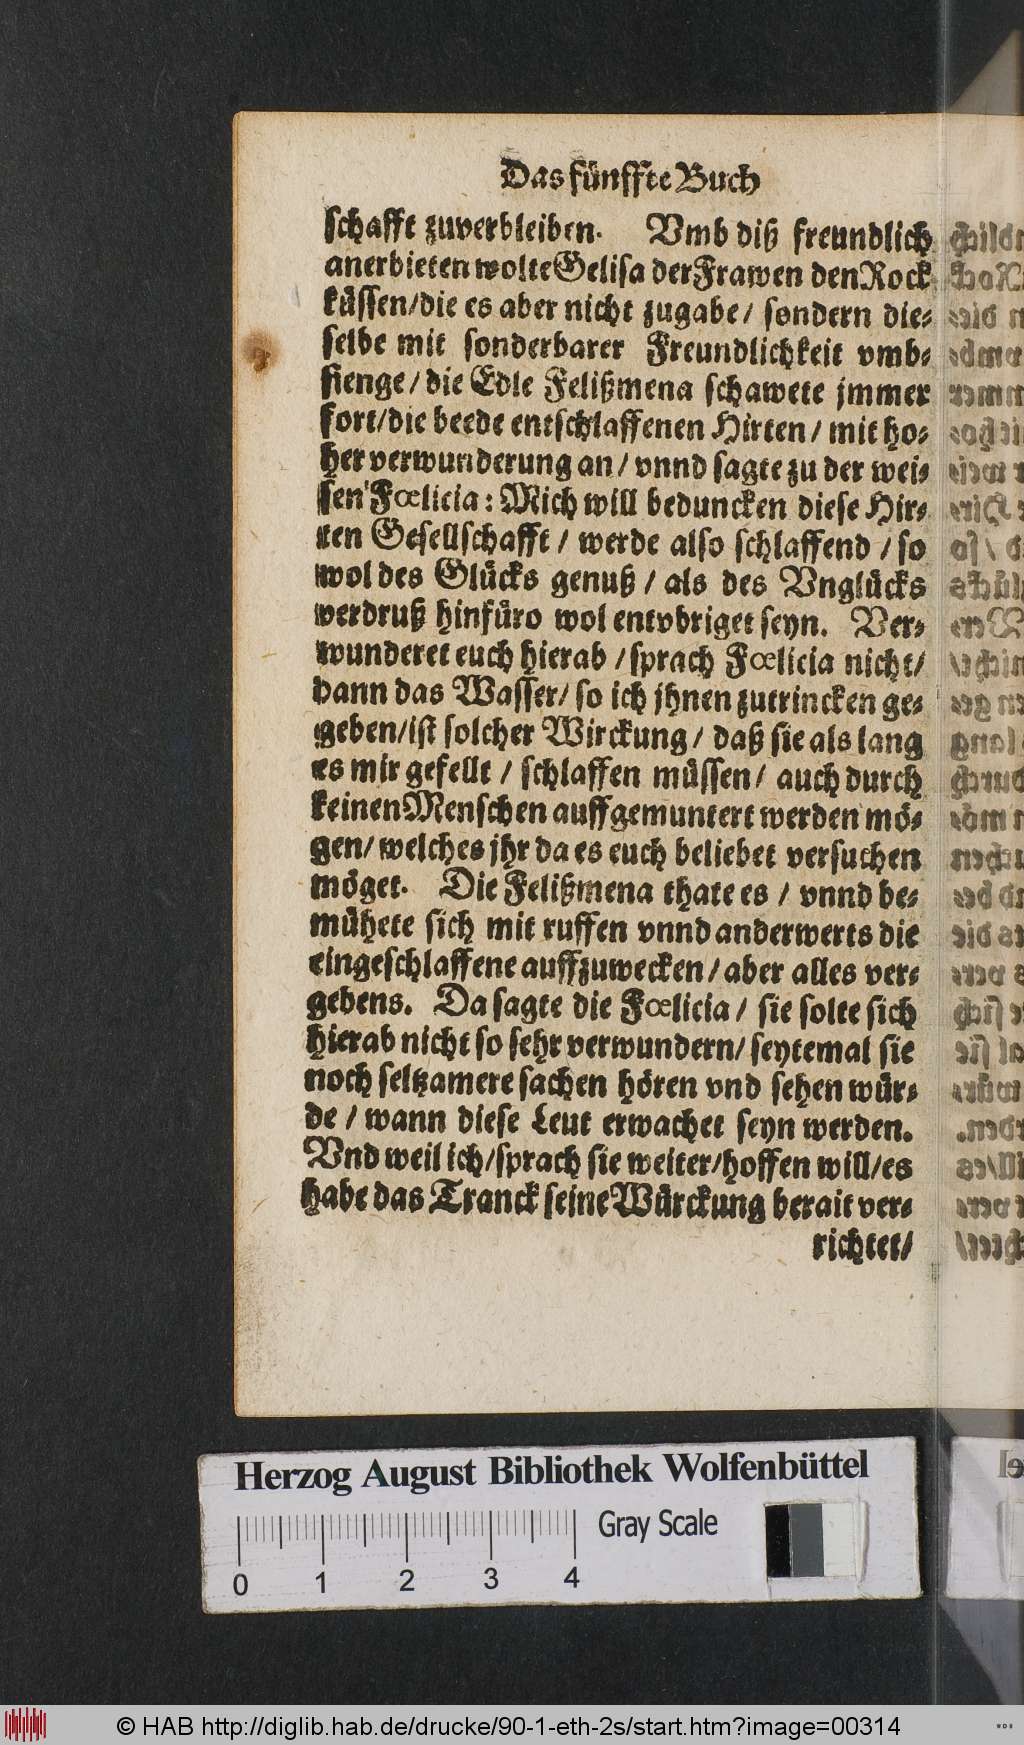 Das fünffte Buch
schafft zuverbleiben. Vmb diß freundlich
anerbieten wolte Gelisa der Frawen den Rock
küssen/die es aber nicht zugabe/ sondern die-
selbe mit sonderbarer Freundlichkeit vmb-
fienge/die Edle Felißmena schawete jmmer
fort/die beede entschlaffenen Hirten/ mit ho-
her verwunderung an/ vnnd sagte zu der wei-
sen Fœlicia: Mich will beduncken diese Hir-
ten Gesellschafft/ werde also schlaffend/so
wol des Glücks genuß/ als des Vnglücks
verdruß hinfüro wol entvbriget seyn. Ver-
wunderet euch hierab/sprach Fœlicia nicht/
dann das Wasser/so ich jhnen zutrincken ge-
geben/ist solcher Wirckung/ daß sie als lang
es mir gefellt/ schlaffen müssen/ auch durch
keinen Menschen auffgemuntert werden mö-
gen/welches jhr da es euch beliebet versuchen
möget. Die Felißmena thate es/ vnnd be-
mühete sich mit ruffen vnnd anderwerts die
eingeschlaffene auffzuwecken/aber alles ver-
gebens. Da sagte die Fœlicia/ sie solte sich
hierab nicht so sehr verwundern/seytemal sie
noch seltzamere sachen hören vnd sehen wür-
de/ wann diese Leut erwachet seyn werden.
Vnd weil ich/sprach sie weiter/hoffen will/es
habe das Tranck seine Würckung berait ver-
richtet/
Herzog August Bibliothek Wolfenbüttel
Gray Scale
0 1 2 3 4
© HAB http://diglib.hab.de/drucke/90-1-eth-2s/start.htm?image=00314